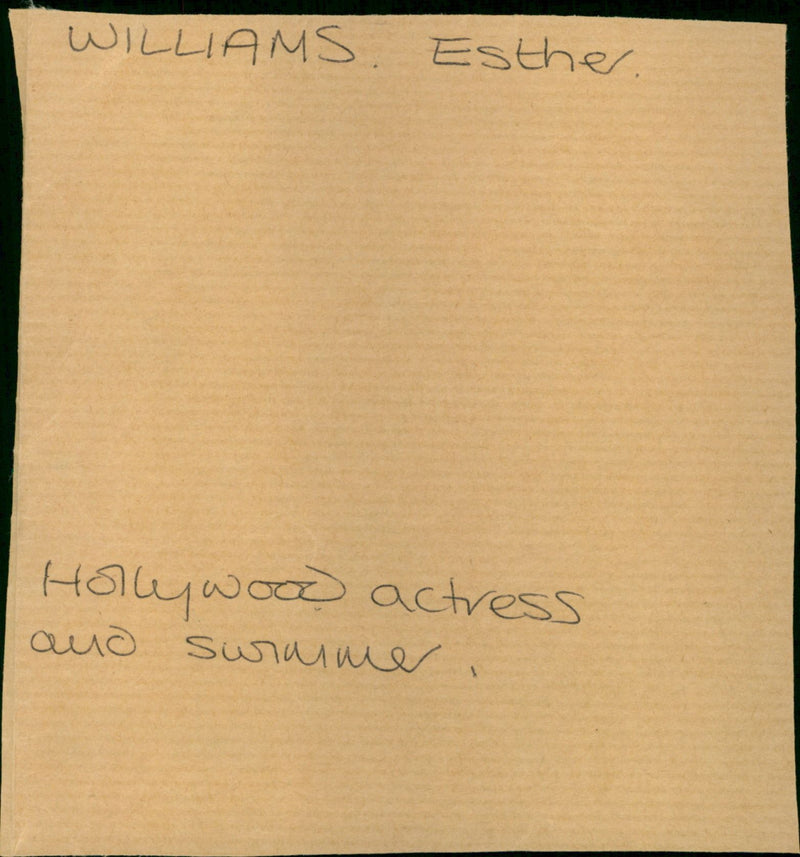 WILLIAMS. Esther.
Hollywood actress
and swimmer.